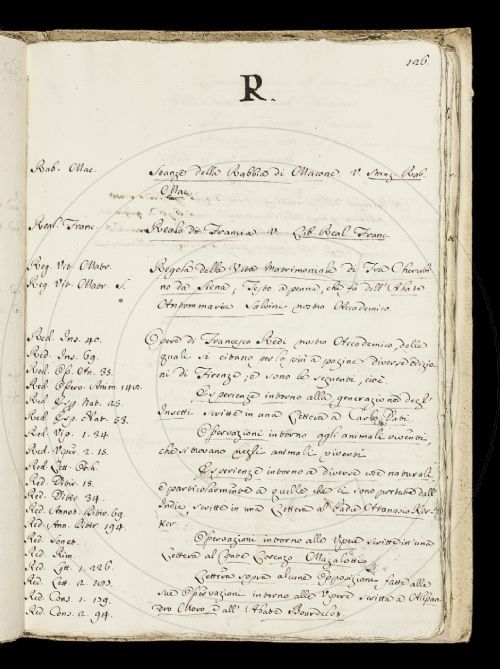 126.
R.
Rab. Mac. Stanze della Rabbia di Macone V. Stanz. Rab.
Mac.
Real. Franc. Reali di Francia V. Lib. Real. Franc.
Reg. Vit. Matr. Regola della Vita Matrimoniale di Fra Cherubi-
Reg. Vit. Matr. S. no da Siena; Testo a penna, che fu dell'Abate
Antommaria Salvini nostro Accademico.
Red. Ins. 40. Opere di Francesco Redi nostro Accademico, delle
Red. Ins. 69. quali si citano per lo più a pagine diverse edizio-
Red. Op. An. 35. ni di Firenze, e sono le seguenti, cioè
Red. Osserv. Anim. 142. Esperienze intorno alla generazione degl'
Red. Esp. Nat. 25. Insetti scritte in una Lettera a Carlo Dati.
Red. Esp. Nat. 53. Osservazioni intorno agli animali viventi,
Red. Vip. 1. 34 che si trovano negli animali viventi.
Red. Viper. 2. 15.
Red. Lett. Occh. Esperienze intorno a diverse cose naturali,
Red. Ditir. 18. e particolarmente a quelle che ci sono portate dall'
Red. Ditir. 34. Indie scritte in una Lettera al Padre Attanasio Kir-
Red. Annot. Ditir. 69. ker
Red. Ann. Ditir. 194. Osservazioni intorno alle Vipere scritte in una
Red. Sonet. Lettera al Conte Lorenzo Magalotti.
Red. Rim.
Red. Lett. 1. 226. Lettera sopra alcune Opposizioni fatte alle
Red. Lett. 2. 103. sue Osservazioni intorno alle Vipere scritta a Alessan-
Red. Cons. 1. 129. dro Moro, e all'Abate Bourdelot
Red. Cons. 2. 94.